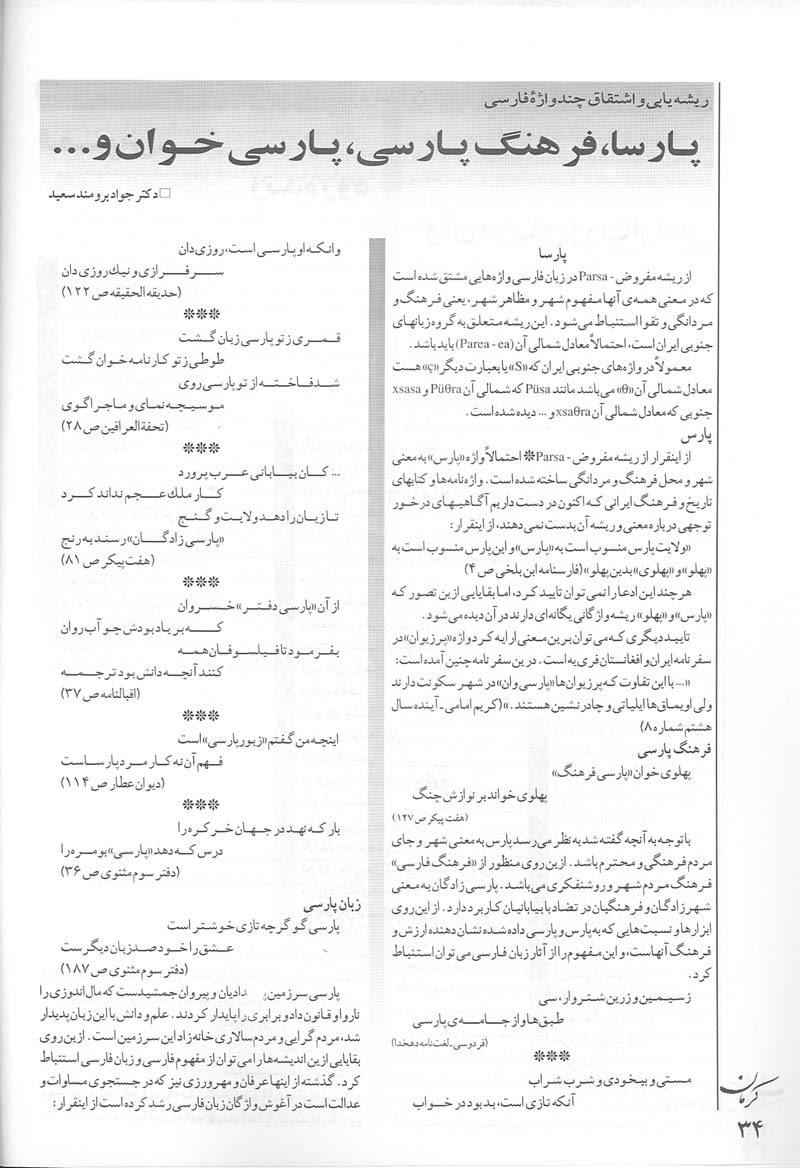 ریشه‌یابی و اشتقاق چند واژهٔ فارسی
پارسا، فرهنگ پارسی، پارسی خوان و...
□ دکتر جواد برومند سعید
پارسا
از ریشه مفروض - Parsa در زبان فارسی واژه‌هایی مشتق شده است
که در معنی همه‌ی آنها مفهوم شهر و مظاهر شهر، یعنی فرهنگ و
مردانگی و تقوا استنباط می‌شود. این ریشه متعلق به گروه زبانهای
جنوبی ایران است، احتمالاً معادل شمالی آن (Parea - ea) باید باشد.
معمولاً در واژه‌های جنوبی ایران که «S» یا بعبارت دیگر «ç» هست
معادل شمالی آن «θ» می‌باشد مانند Püsa که شمالی آن Püθra و xsasa
جنوبی که معادل شمالی آن xsaθra و ... دیده شده است.
پارس
از اینقرار از ریشه مفروض - Parsa❊ احتمالاً واژه «پارس» به معنی
شهر و محل فرهنگ و مردانگی ساخته شده است. واژه‌نامه‌ها و کتابهای
تاریخ و فرهنگ ایرانی که اکنون در دست داریم آگاهیهای درخور
توجهی درباره معنی و ریشه آن بدست نمی‌دهند، از اینقرار:
«ولایت پارس منسوب است به «پارس» و این پارس منسوب است به
«پهلو» و «پهلوی» بدین پهلو» (فارسنامه ابن بلخی ص ۴)
هر چند این ادعا را نمی‌توان تایید کرد، اما بقایایی ازین تصور که
«پارس» و «پهلو» ریشه واژگانی یگانه‌ای دارند در آن دیده می‌شود.
تایید دیگری که می‌توان برین معنی ارایه کرد واژه «پرزیوان» در
سفرنامه ایران و افغانستان فریه است. درین سفرنامه چنین آمده است:
«... با این تفاوت که پرزیوان‌ها «پارسی وان» در شهر سکونت دارند
ولی اویماق‌ها ایلیاتی و چادرنشین هستند.» (کریم امامی - آینده سال
هشتم شماره ۸)
فرهنگ پارسی
پهلوی خوان «پارسی فرهنگ»
پهلوی خواند بر نوازش چنگ
(هفت پیکر ص ۱۲۷)
با توجه به آنچه گفته شد به نظر می‌رسد پارس به معنی شهر و جای
مردم فرهنگی و محترم باشد. ازین روی منظور از «فرهنگ فارسی»
فرهنگ مردم شهر و روشنفکری می‌باشد. پارسی زادگان به معنی
شهرزادگان و فرهنگیان در تضاد با بیابانیان کاربرد دارد. از این روی
ابزارها و نسبت‌هایی که به پارس و پارسی داده شده نشان دهنده ارزش و
فرهنگ آنهاست، و این مفهوم را از آثار زبان فارسی می‌توان استنباط
کرد.
ز سیمین و زرین شتروار، سی
طبق‌ها و از جامه‌ی پارسی
(فردوسی - لغت‌نامه دهخدا)
❊❊❊
مستی و بیخودی و شرب شراب
آنکه تازی است، بد بود در خواب
وانکه او پارسی است، روزی دان
سرفرازی و نیک روزی دان
(حدیقه الحقیقه ص ۱۲۲)
❊❊❊
قمری ز تو پارسی زبان گشت
طوطی ز تو کارنامه خوان گشت
شد فاخته از تو پارسی روی
موسیچه نمای و ماجراگوی
(تحفة العراقین ص ۲۸)
❊❊❊
... کان بیابانی عرب پرورد
کار ملک عجم نداند کرد
تازیان را دهد ولایت و گنج
«پارسی زادگان» رسند به رنج
(هفت پیکر ص ۸۱)
❊❊❊
از آن «پارسی دفتر» خسروان
که بر یاد بودش چو آب روان
بفرمود تا فیلسوفان همه
کنند آنچه دانش بود ترجمه
(اقبالنامه ص ۳۷)
❊❊❊
اینچه من گفتم «زبور پارسی» است
فهم آن نه کار مرد پارساست
(دیوان عطار ص ۱۱۴)
❊❊❊
بار که نهد در جهان خرکره را
درس که دهد «پارسی» بومره را
(دفتر سوم مثنوی ص ۳۶)
زبان پارسی
پارسی گو گرچه تازی خوشتر است
عشق را خود صد زبان دیگرست
(دفتر سوم مثنوی ص ۱۸۷)
پارسی سرزمین دادیان و پیروان جمشیدست که مال اندوزی را
ناروا و قانون داد و برابری را پایدار کردند. علم و دانش با این زبان پدیدار
شد، مردم گرایی و مردم سالاری خانه زاد این سرزمین است. ازین روی
بقایایی از این اندیشه‌ها را می‌توان از مفهوم فارسی و زبان فارسی استنباط
کرد. گذشته از اینها عرفان و مهرورزی نیز که در جستجوی مساوات و
عدالت است در آغوش واژگان زبان فارسی رشد کرده است از اینقرار:
کرمان
۳۴